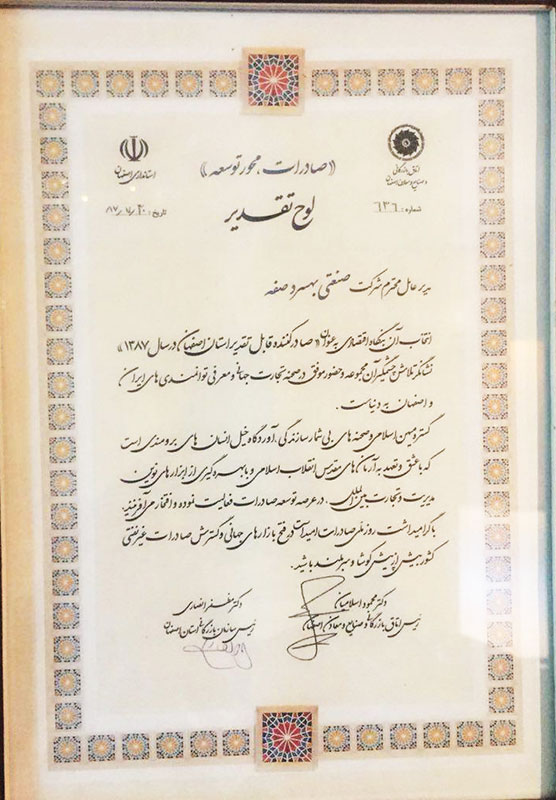 استانداری اصفهان
اتاق بازرگانی
و صنایع و معادن اصفهان
«صادرات، محور توسعه»
لوح تقدیر
شماره: ٦٣٦
تاریخ: ٨٧/٧/٣٠
مدیر عامل محترم شرکت صنعتی بهسرد صفه
انتخاب آن بنگاه اقتصادی به عنوان «صادرکننده قابل تقدیر استان اصفهان در سال ١٣٨٧»
نشانگر تلاش چشمگیر آن مجموعه و حضور موفق در صحنه تجارت جهانی و معرفی توانمندی های ایران
و اصفهان به دنیاست.
گستره میهن اسلامی و صحنه های بی شمار سازندگی، آوردگاه خیل انسان های برومندی است
که با عشق و تعهد به آرمان های مقدس انقلاب اسلامی و با بهره گیری از ابزارهای نوین
مدیریت و تجارت بین المللی، در عرصه توسعه صادرات فعالیت نموده و افتخار می آفرینند.
با گرامیداشت روز ملی صادرات امید است در فتح بازارهای جهانی و گسترش صادرات غیر نفتی
کشور بیش از پیش کوشا و سربلند باشید.
دکتر محمود اسلامیان
رئیس اتاق بازرگانی و صنایع و معادن اصفهان
دکتر مظفر انصاری
رئیس سازمان بازرگانی استان اصفهان